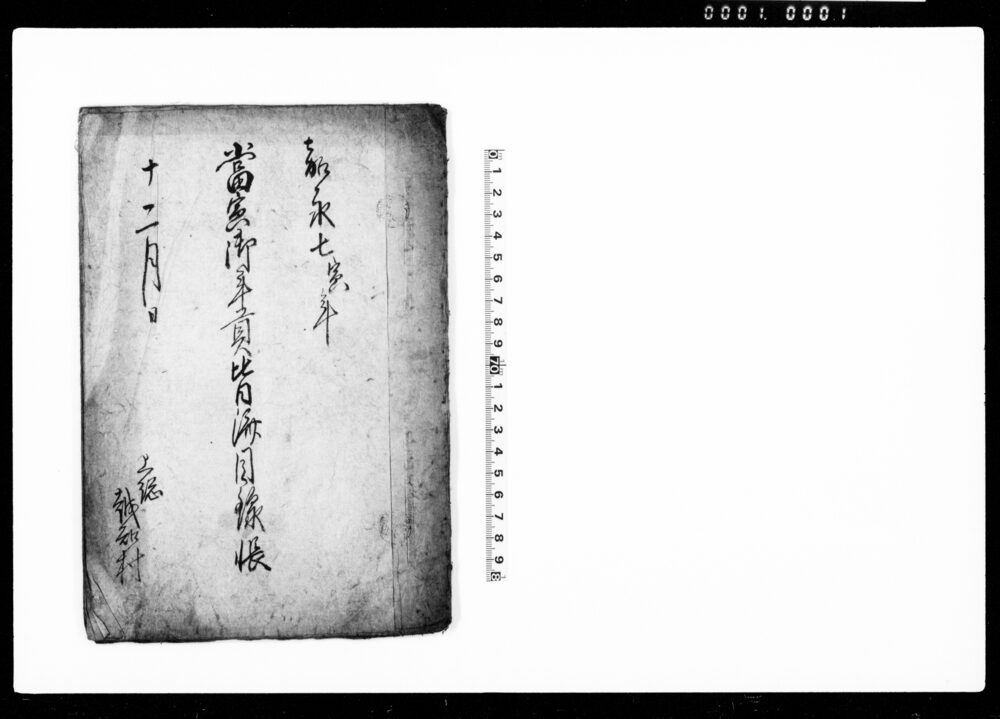 0001. 0001
嘉永七寅年
當寅御年貢皆済目録帳
十二月日
上総
越知村
0 1 2 3 4 5 6 7 8 9 10 1 2 3 4 5 6 7 8 9